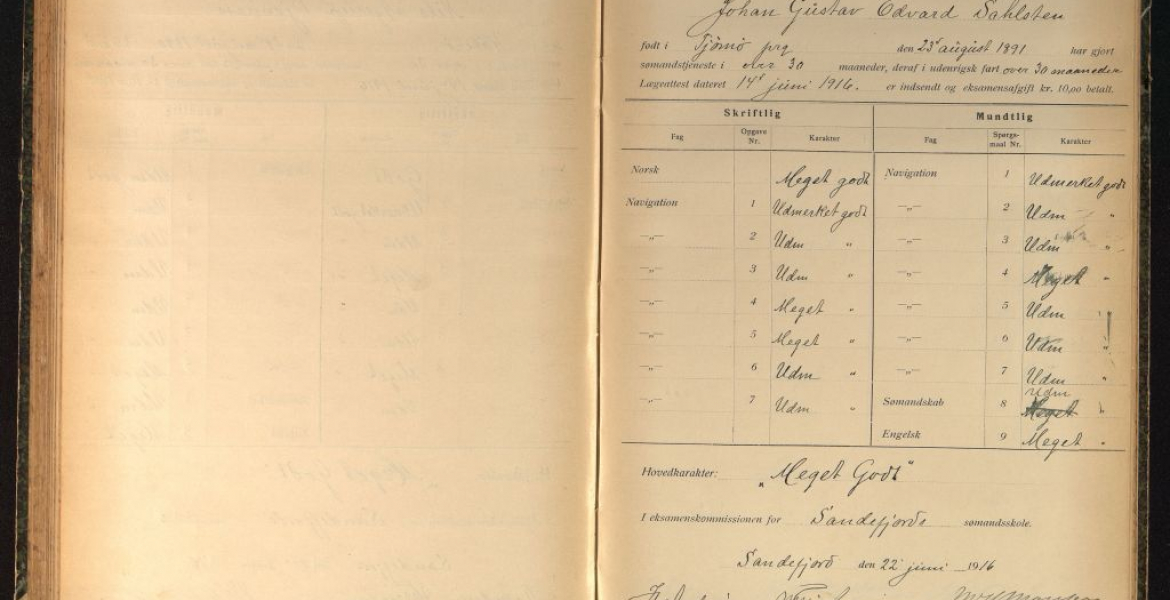 Johan Gustav Edvard Dahlsten
født i Tjømø prg den 23' august 1891 har gjort
sømandstjeneste i over 30 maaneder, deraf i udenrigsk fart over 30 maaneder
Lægeattest dateret 14' juni 1916. er indsendt og eksamensafgift kr. 10,00 betalt.
Skriftlig Mundtlig
Fag Opgave Nr. Karakter Fag Spørgsmaal Nr. Karakter
Norsk Meget godt Navigation 1 Udmerket godt
Navigation 1 Udmerket godt —„— 2 Udm "
—„— 2 Udm " —„— 3 Udm "
—„— 3 Udm " —„— 4 Meget "
—„— 4 Meget " —„— 5 Udm
—„— 5 Meget " —„— 6 Udm "
—„— 6 Udm " —„— 7 Udm "
—„— 7 Udm " Sømandskab 8 Udm Meget "
Engelsk 9 Meget "
Hovedkarakter: „Meget Godt"
I eksamenskommissionen for Sandefjords sømandsskole.
Sandefjord den 22' juni 1916